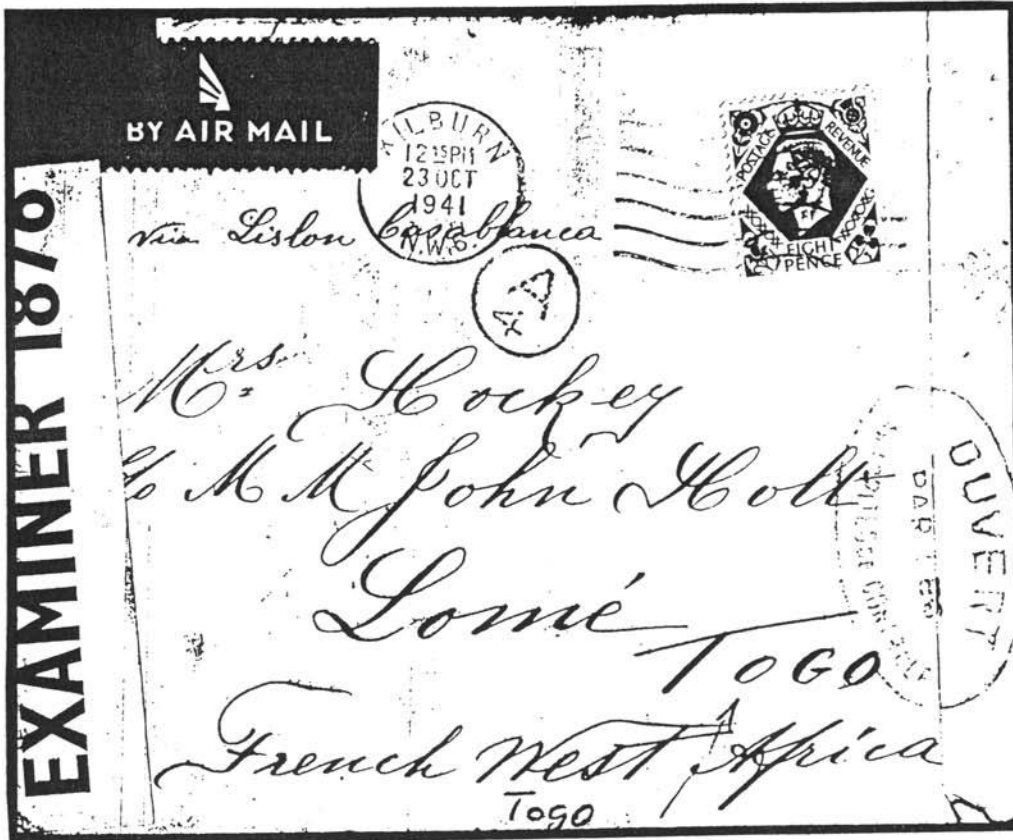 BY AIR MAIL
KILBURN
12 15 PM
23 OCT
1941
N.W.6.
POSTAGE REVENUE
EIGHT
PENCE
via Lisbon Casablanca
4A
EXAMINER 1876
Mrs Hockey
c/o M M John Holt
Lomé
TOGO
French West Africa
Togo
OUVERT
PAR